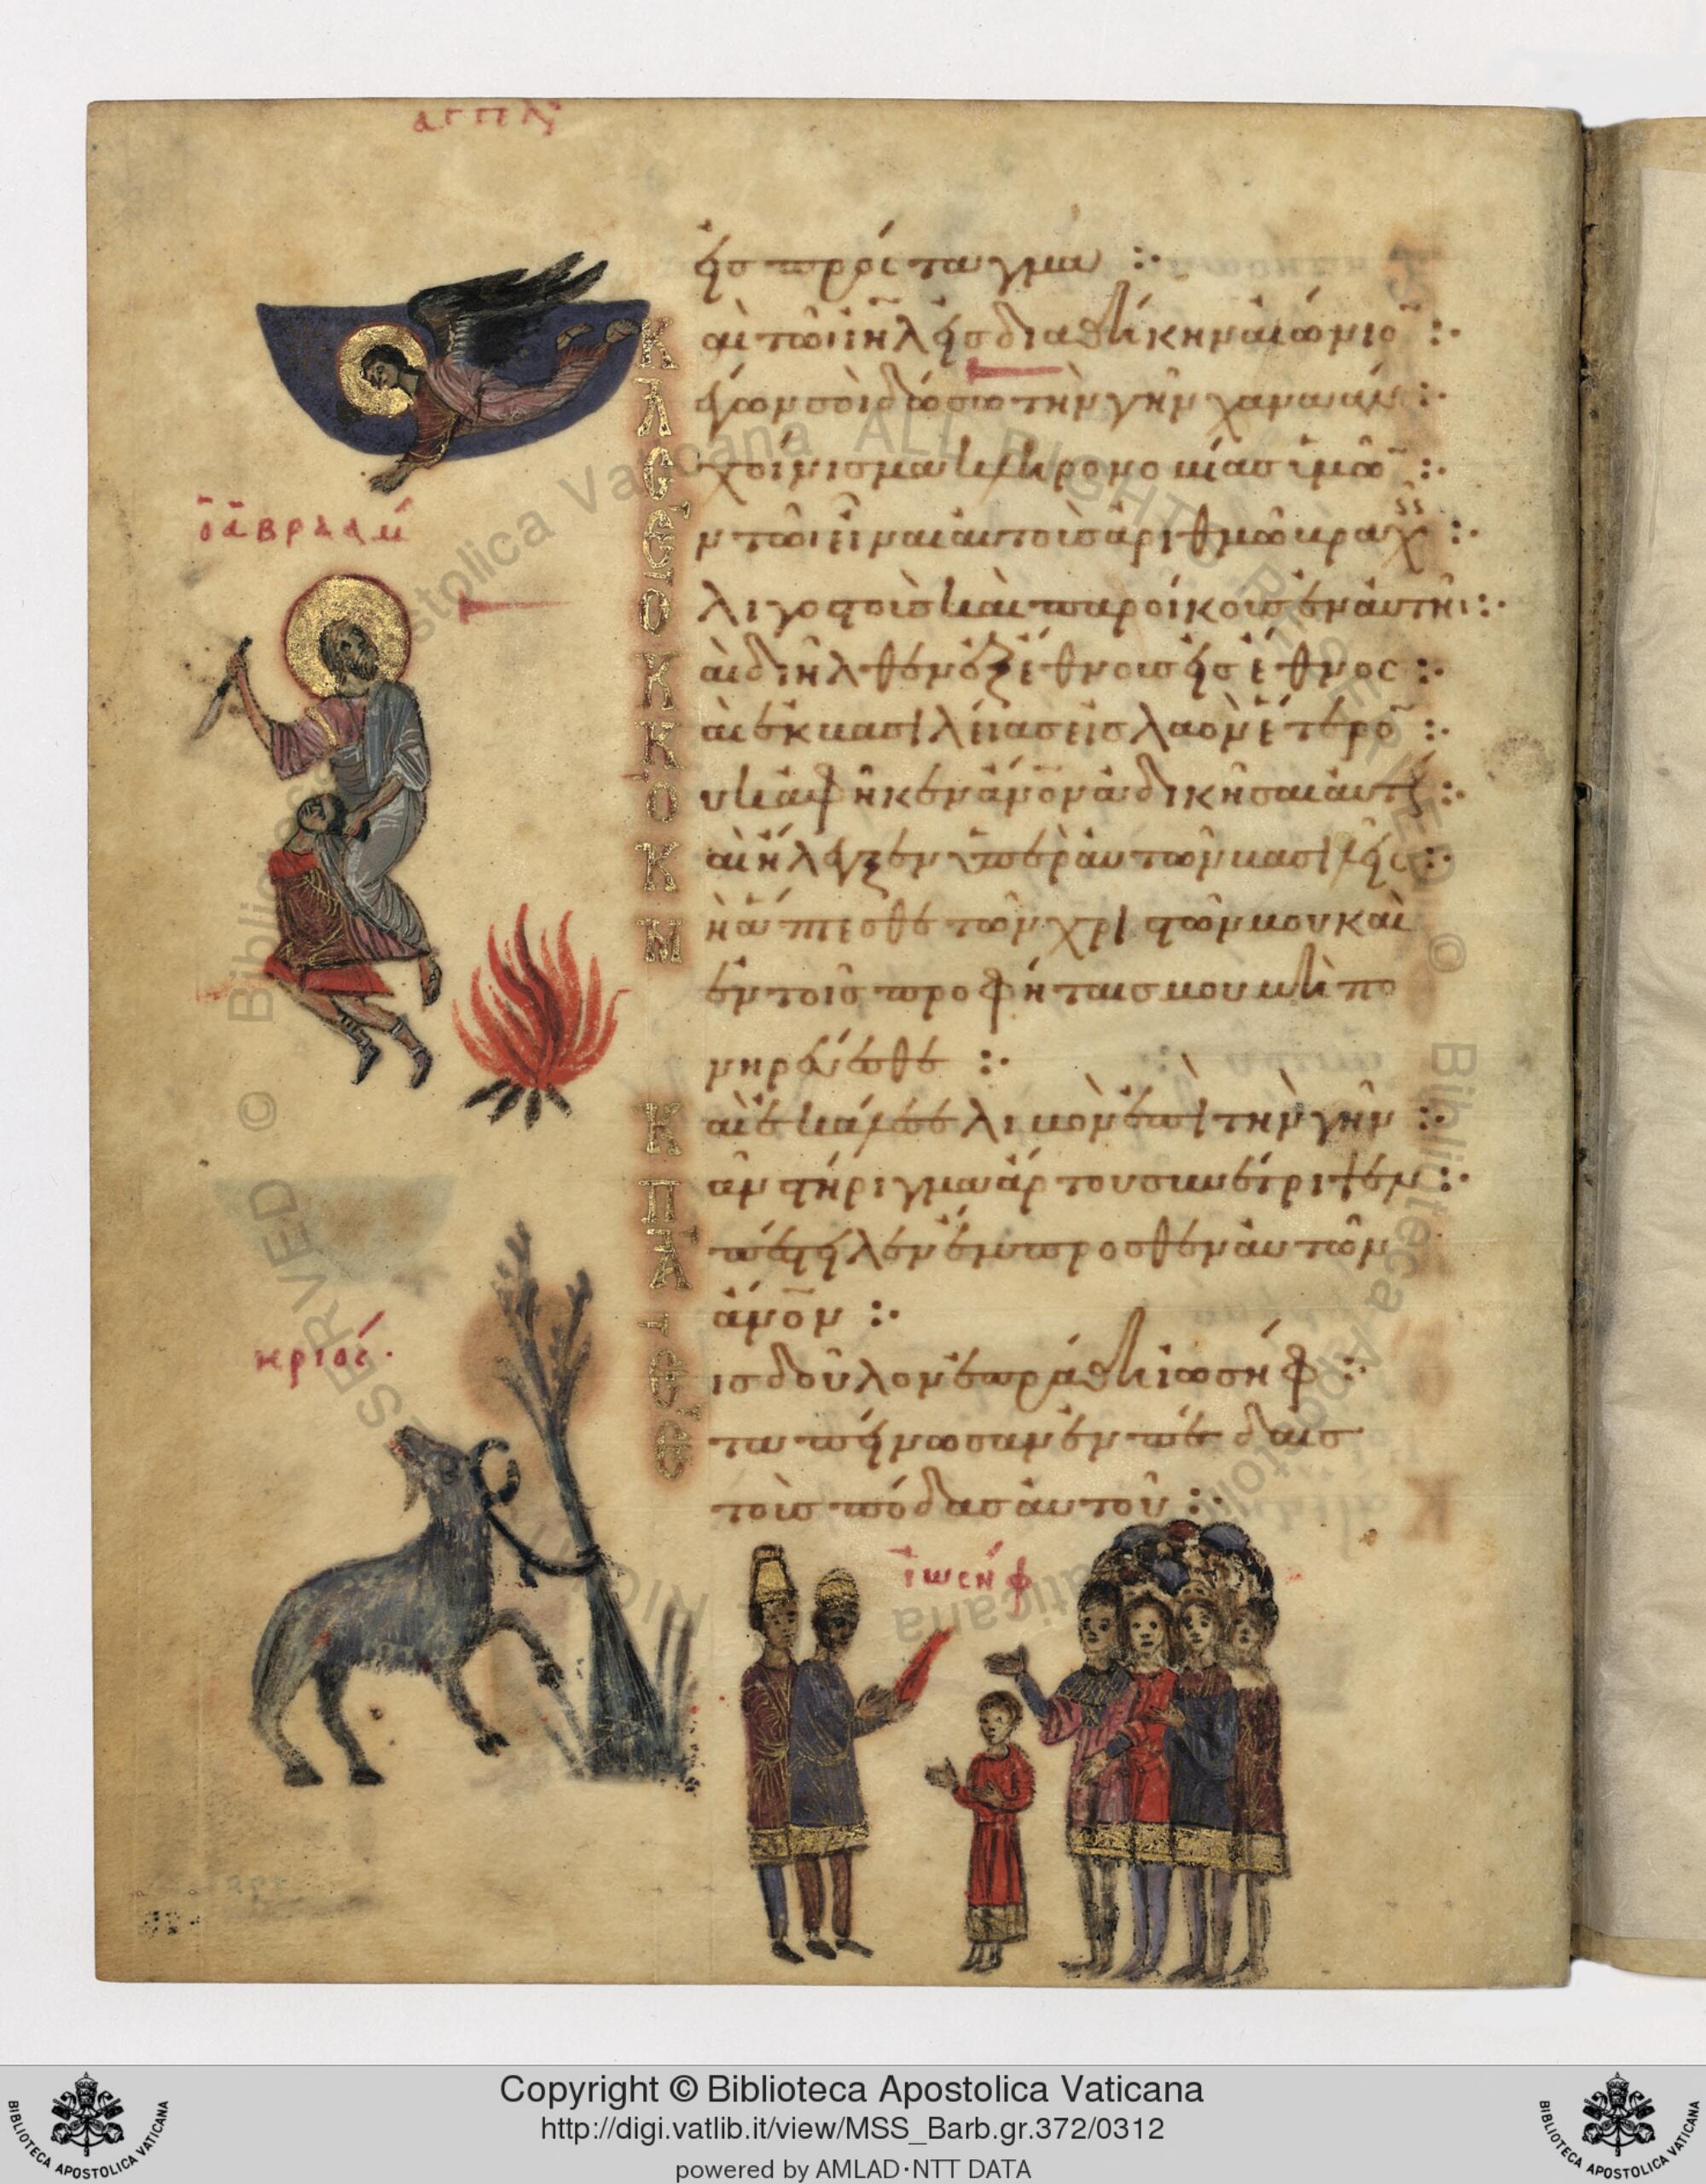 αγγελο
εἰς πρόσταγμα :·
Καὶ τῶ ιη̅λ εἰς διαθήκην αἰώνιον :·
Λέγων σοὶ δώσω τὴν γῆν χαναάν :·
Σχοίνισμα κληρονομίας ὑμῶν :·
ὁ ἀβραάμ
Ἐν τῶ εἶναι αὐτοὺς ἀριθμῶ βραχεῖς :·
Ὀλιγοστοὺς καὶ παροίκους ἐν αὐτῆι :·
Καὶ διῆλθον ἐξ ἔθνους εἰς ἔθνος :·
Καὶ ἐκ βασιλείας εἰς λαὸν ἕτερον :·
Οὐκ ἀφῆκεν ἀν̅ον ἀδικῆσαι αὐτούς :·
Καὶ ἤλεγξεν ὑπὲρ αὐτῶν βασιλεῖς :·
Μὴ ἅπτεσθε τῶν χριστῶν μου καὶ
ἐν τοῖς προφήταις μου μὴ πο
νηρεύεσθε :·
Καὶ ἐκάλεσε λιμὸν ἐπὶ τὴν γῆν :·
Πᾶν στήριγμα ἄρτου συνέτριψεν :·
Ἀπέστειλεν ἔμπροσθεν αὐτῶν
ἀν̅ον :·
κριός·
Εἰς δοῦλον ἐπράθη ἰωσήφ :·
Ἐταπείνωσαν ἐν πέδαις
τοὺς πόδας αὐτοῦ :·
ἰωσήφ
Copyright © Biblioteca Apostolica Vaticana
http://digi.vatlib.it/view/MSS_Barb.gr.372/0312
powered by AMLAD·NTT DATA
BIBLIOTECA APOSTOLICA VATICANA
BIBLIOTECA APOSTOLICA VATICANA
© Biblioteca Apostolica Vaticana ALL RIGHTS RESERVED